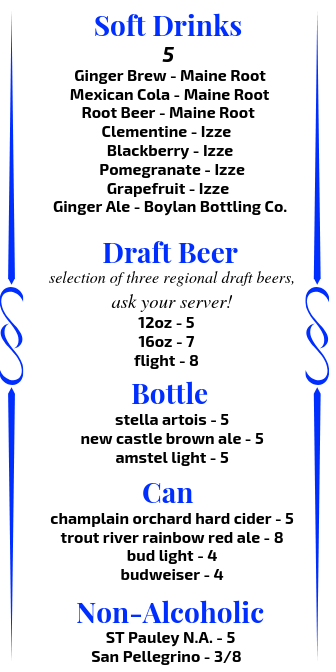 Soft Drinks
5
Ginger Brew - Maine Root
Mexican Cola - Maine Root
Root Beer - Maine Root
Clementine - Izze
Blackberry - Izze
Pomegranate - Izze
Grapefruit - Izze
Ginger Ale - Boylan Bottling Co.
Draft Beer
selection of three regional draft beers,
ask your server!
12oz - 5
16oz - 7
flight - 8
Bottle
stella artois - 5
new castle brown ale - 5
amstel light - 5
Can
champlain orchard hard cider - 5
trout river rainbow red ale - 8
bud light - 4
budweiser - 4
Non-Alcoholic
ST Pauley N.A. - 5
San Pellegrino - 3/8